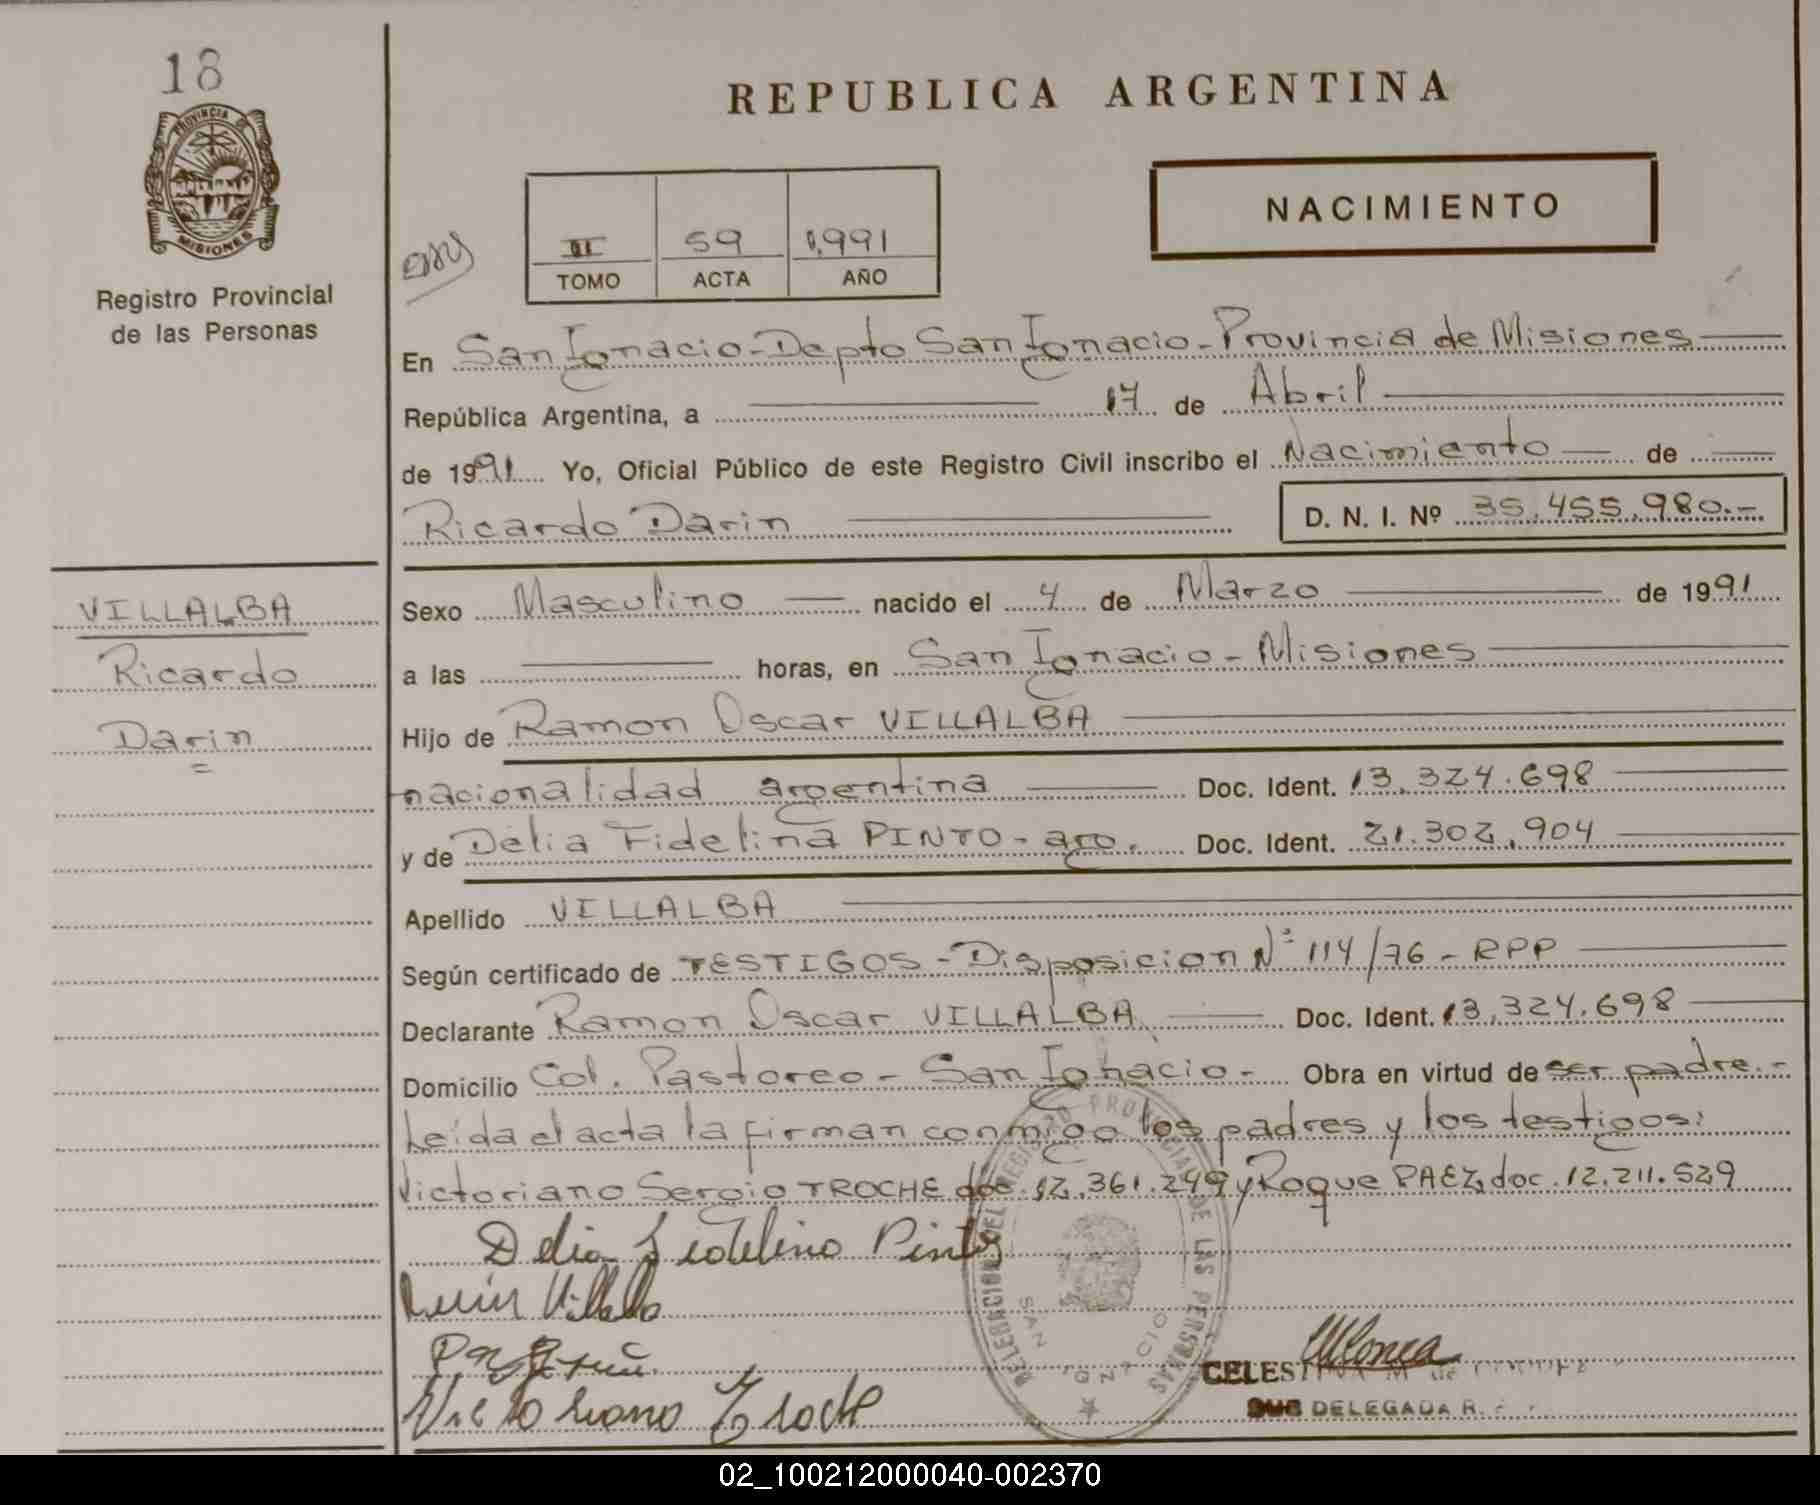 18
PROVINCIA DE
MISIONES
Registro Provincial
de las Personas
REPUBLICA ARGENTINA
NACIMIENTO
II 59 1.991
TOMO ACTA AÑO
En San Ignacio-Depto San Ignacio-Provincia de Misiones
República Argentina, a 17 de Abril
de 1991 Yo, Oficial Público de este Registro Civil inscribo el Nacimiento de
Ricardo Darin D. N. I. Nº 35.455.980.-
VILLALBA
Ricardo
Darin
Sexo Masculino nacido el 4 de Marzo de 1991
a las horas, en San Ignacio - Misiones
Hijo de Ramon Oscar VILLALBA
nacionalidad argentina Doc. Ident. 13.324.698
y de Delia Fidelina PINTO - arg. Doc. Ident. 21.302.904
Apellido VILLALBA
Según certificado de TESTIGOS - Disposicion Nº 114/76 - RPP
Declarante Ramon Oscar VILLALBA Doc. Ident. 13.324.698
Domicilio Col. Pastoreo - San Ignacio - Obra en virtud de ser padre.-
Leída el acta la firman conmigo los padres y los testigos:
Victoriano Sergio TROCHE doc. 12.361.249 y Roque PAEZ, doc. 12.211.529
Delia Fidelina Pinto
Villalba
Victoriano Troche
DELEGACION DEL REGISTRO PROVINCIAL DE LAS PERSONAS
SAN IGNACIO
CELESTINA M. de
SUB DELEGADA R.
02_100212000040-002370